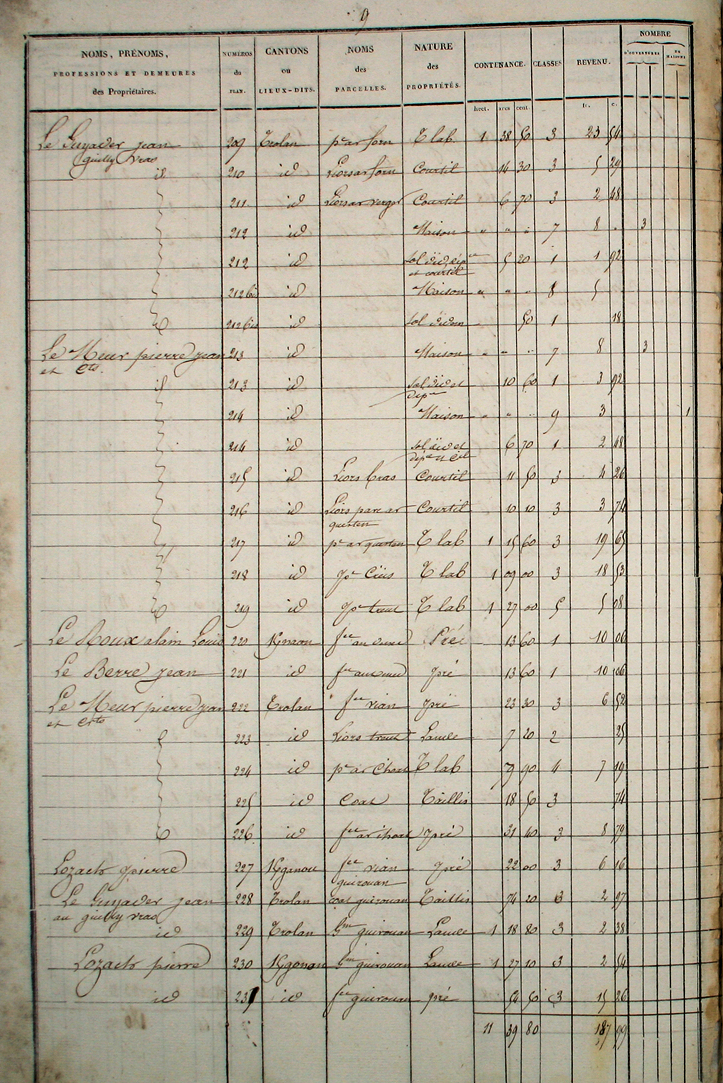 9
NOMS, PRÉNOMS, PROFESSIONS ET DEMEURES des Propriétaires. NUMÉROS du PLAN. CANTONS ou LIEUX-DITS. NOMS des PARCELLES. NATURE des PROPRIÉTÉS. CONTENANCE. CLASSES REVENU. NOMBRE D'OUVERTURES DE MAISONS
hect. ares cent. fr. c.
Le Guyader jean 209 Trolan pc ar forn T lab 1 38 50 3 23 54
guilly vras
id 210 id Liorsar forn Courtil 14 30 3 5 29
211 id Liorsar verger Courtil 6 70 3 2 48
212 id Maison " " " 7 8 . 3
212 id sol dud dépce 5 20 1 1 92
et courtil
212 bis id Maison " " " 8 5
212 bis id sol dudun 50 1 18
Le Meur pierre jean 213 id Maison " " " 7 8 3
et Cts.
id 213 id sol dud et 10 60 1 3 92
dépce
214 id Maison " " " 9 3 1
214 id sol dud et 6 70 1 2 48
dépce et Ctil
215 id Liors bras Courtil 11 50 3 4 26
216 id Liors parc ar Courtil 10 10 3 3 74
questen
217 id pc ar questen T lab 1 15 60 3 19 65
218 id T lab 1 09 00 3 18 53
219 id treut T lab 1 27 00 5 5 08
Le Roux alain Louis 220 fnc an Pré 13 60 1 10 06
Le Berre jean 221 id fnc pré 13 60 1 10 06
Le Meur pierre jean 222 Trolan fnc vian pré 23 30 3 6 52
et Crts
223 id Liors treut Lande 7 20 2 25
224 id pc ar Choat T lab 79 90 4 7 19
225 id Coat Taillis 18 50 3 74
226 id fnc ar choat pré 31 40 3 8 79
Lozach pierre 227 fnc vian pré 22 00 3 6 16
Le Guyader jean 228 Trolan Coat guirouan Taillis 74 20 3 2 97
au guilly vras
id 229 Trolan guirouan Lande 1 18 80 3 2 38
Lozach pierre 230 guirouan Lande 1 27 10 3 2 54
id 231 id fnc guirouan pré 54 50 3 15 26
11 39 80 187 99